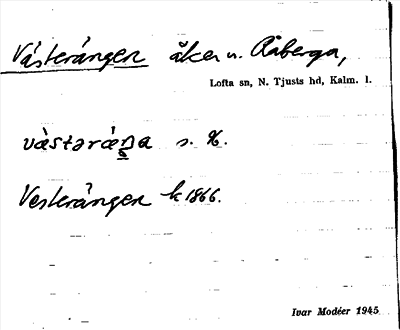 Västerängen åker u. Åaberga,
Lofta sn, N. Tjusts hd, Kalm. l.
västəräŋa s.
Vesterängen k 1866.
Ivar Modéer 1945